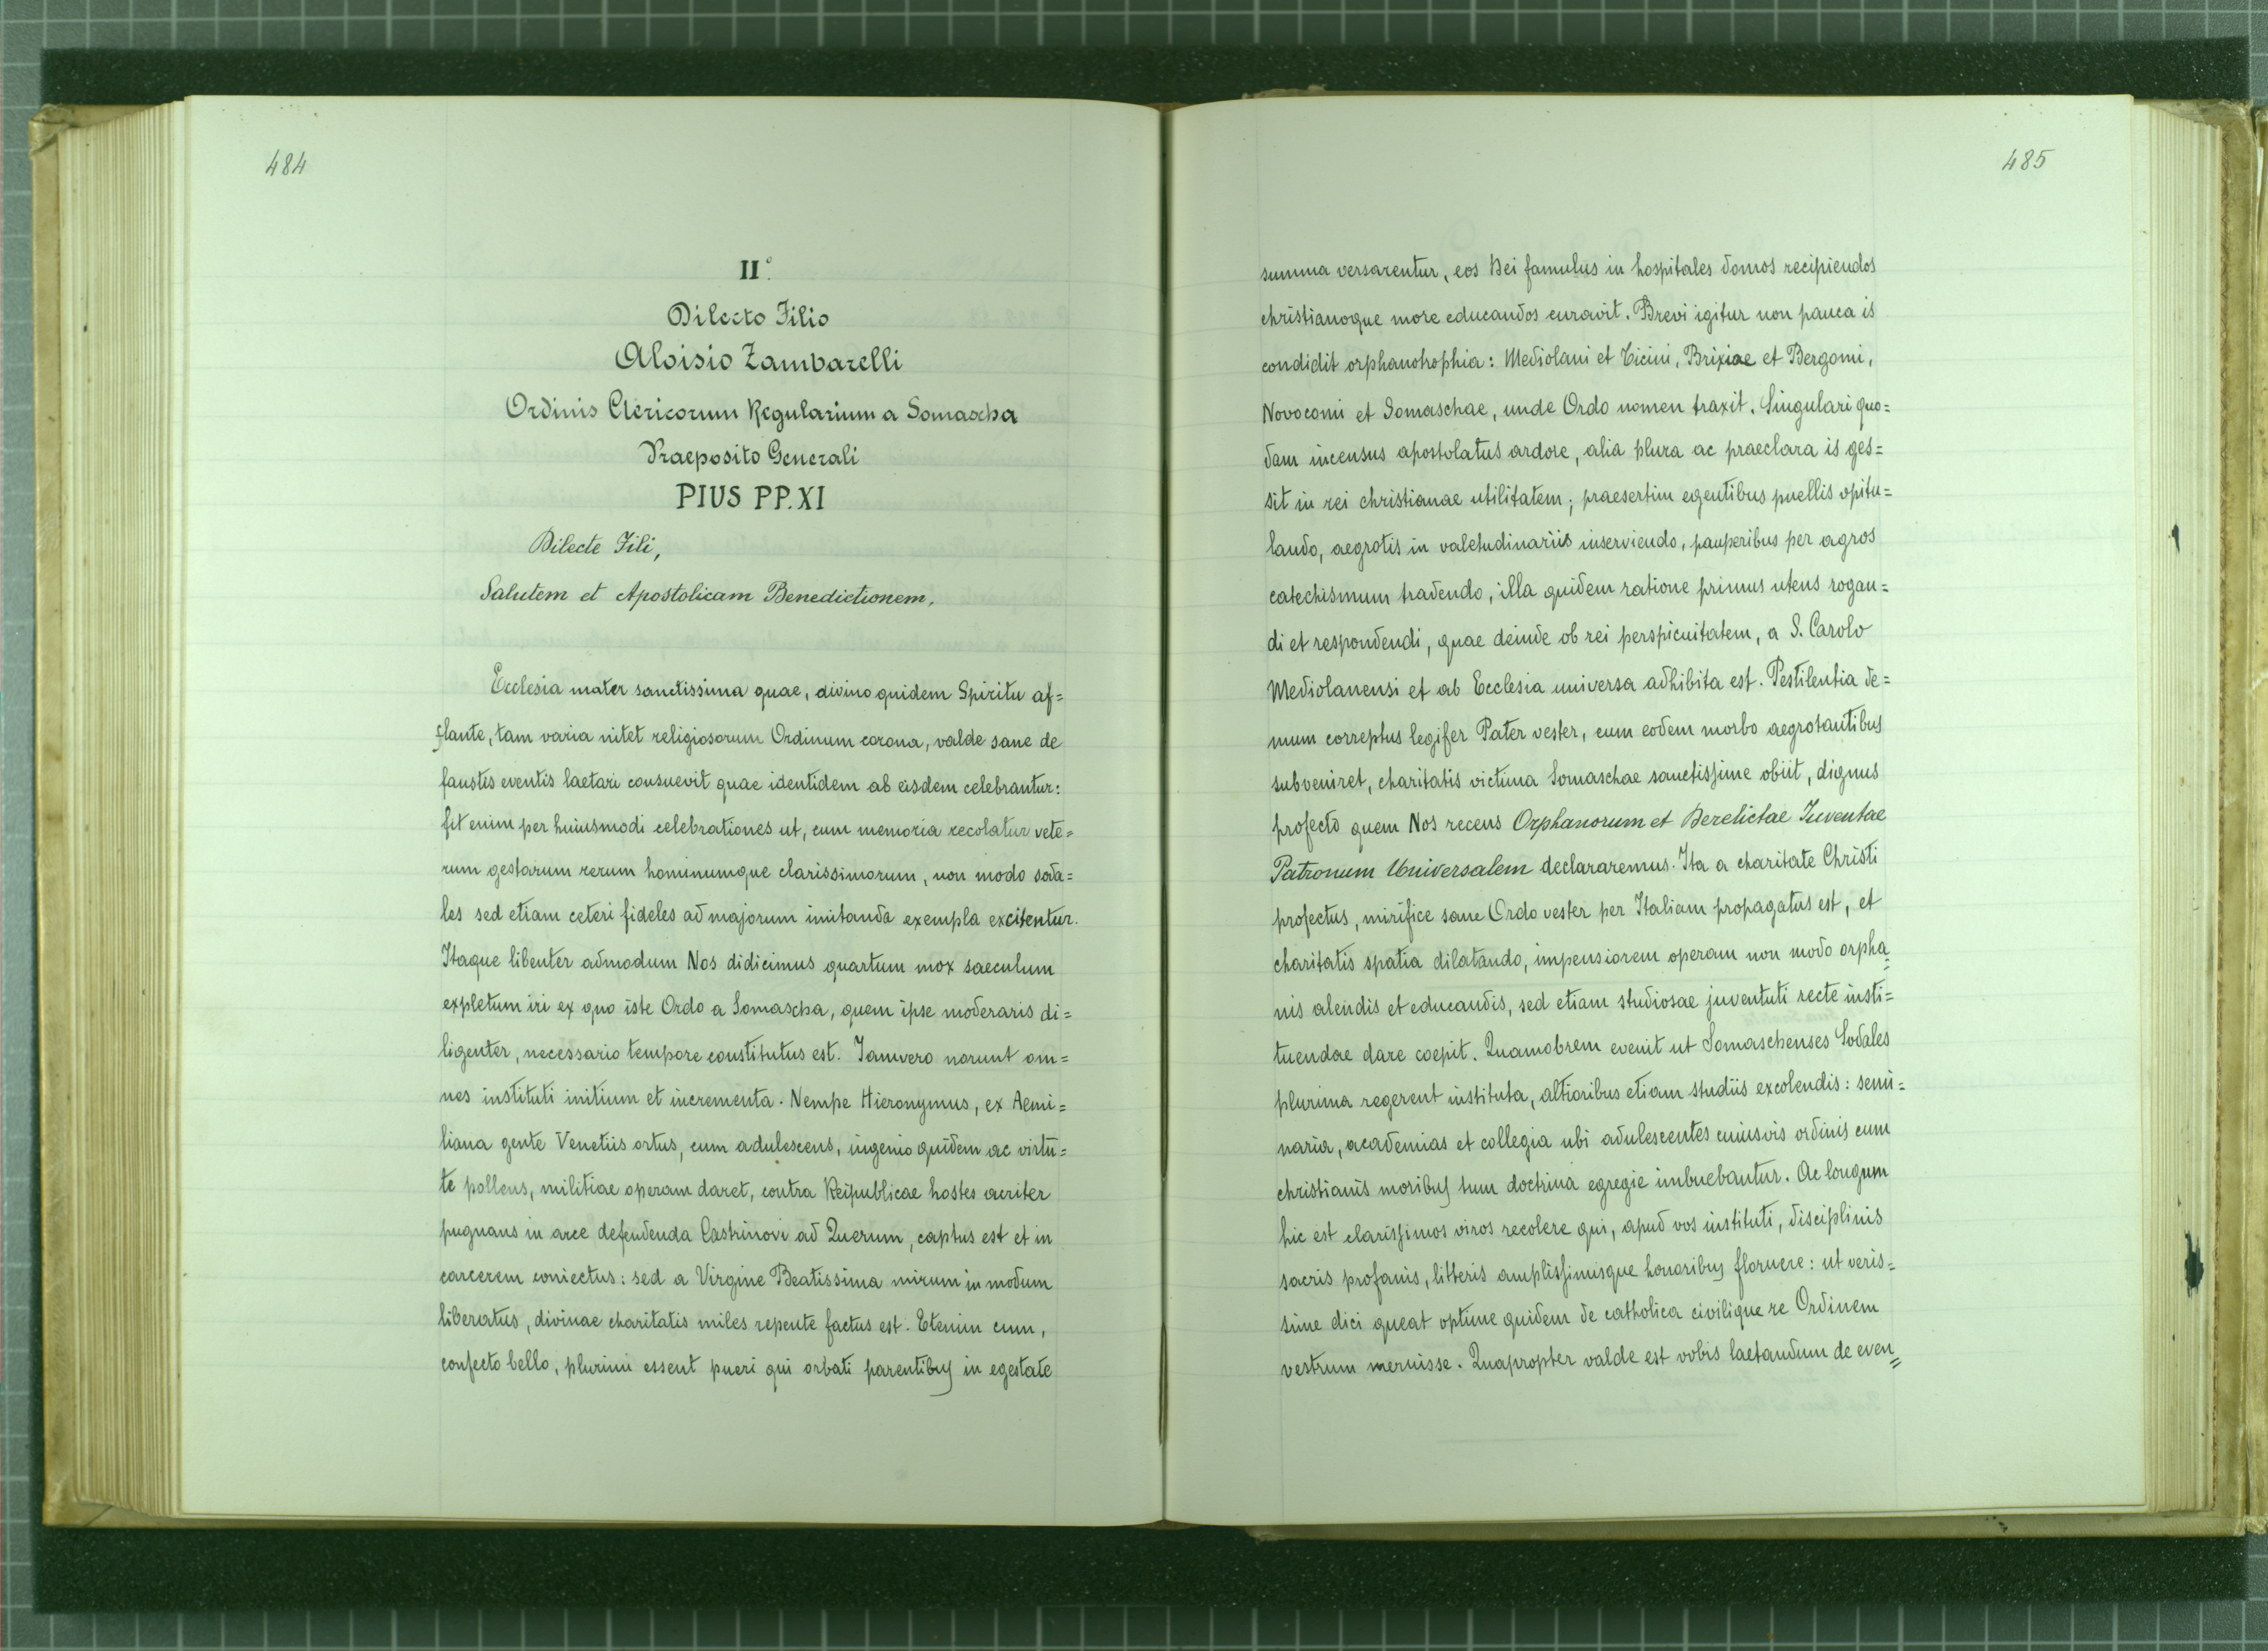 484
II°
Dilecto Filio
Aloisio Zambarelli
Ordinis Clericorum Regularium a Somascha
Praeposito Generali
PIUS PP. XI
Dilecte Fili,
Salutem et Apostolicam Benedictionem.
Ecclesia mater sanctissima quae, divino quidem Spiritu af=
flante, tam varia nitet religiosorum Ordinum corona, valde sane de
faustis eventis laetari consuevit quae identidem ab eisdem celebrantur:
fit enim per huiusmodi celebrationes ut, cum memoria recolatur vete=
rum gestarum rerum hominumque clarissimorum, non modo soda=
les sed etiam ceteri fideles ad majorum imitanda exempla excitentur.
Itaque libenter admodum Nos didicimus quartum mox saeculum
expletum iri ex quo iste Ordo a Somascha, quem ipse moderaris di=
ligenter, necessario tempore constitutus est. Iamvero norunt om=
nes instituti initium et incrementa. Nempe Hieronymus, ex Aemi=
liana gente Venetiis ortus, cum adulescens, ingenio quidem ac virtu=
te pollens, militiae operam daret, contra Reipublicae hostes acriter
pugnans in arce defendenda Castrinovi ad Querum, captus est et in
carcerem coniectus: sed a Virgine Beatissima mirum in modum
liberatus, divinae charitatis miles repente factus est. Etenim cum,
confecto bello, plurimi essent pueri qui orbati parentibus in egestate
485
summa versarentur, eos Dei famulus in hospitales domos recipiendos
christianoque more educandos curavit. Brevi igitur non pauca is
condidit orphanotrophia: Mediolani et Ticini, Brixiae et Bergomi,
Novocomi et Somaschae, unde Ordo nomen traxit. Singulari quo=
dam incensus apostolatus ardore, alia plura ac praeclara is ges=
sit in rei christianae utilitatem; praesertim egentibus puellis opitu=
lando, aegrotis in valetudinariis inserviendo, pauperibus per agros
catechismum tradendo, illa quidem ratione primus utens rogan=
di et respondendi, quae deinde ob rei perspicuitatem, a S. Carolo
Mediolanensi et ab Ecclesia universa adhibita est. Pestilentia de=
mum correptus legifer Pater vester, cum eodem morbo aegrotantibus
subveniret, charitatis victima Somaschae sanctissime obiit, dignus
profecto quem Nos recens Orphanorum et Derelictae Iuventae
Patronum Universalem declararemus. Ita a charitate Christi
profectus, mirifice sane Ordo vester per Italiam propagatus est, et
charitatis spatia dilatando, impensiorem operam non modo orpha=
nis alendis et educandis, sed etiam studiosae juventuti recte insti=
tuendae dare coepit. Quamobrem evenit ut Somaschenses Sodales
plurima regerent instituta, altioribus etiam studiis excolendis: semi=
naria, academias et collegia ubi adulescentes cuiusvis ordinis cum
christianis moribus tum doctrina egregie imbuebantur. Ac longum
hic est clarissimos viros recolere qui, apud vos instituti, disciplinis
sacris profanis, litteris amplissimisque honoribus floruere: ut veris=
sime dici queat optime quidem de catholica civilique re Ordinem
vestrum meruisse. Quapropter valde est vobis laetandum de even=